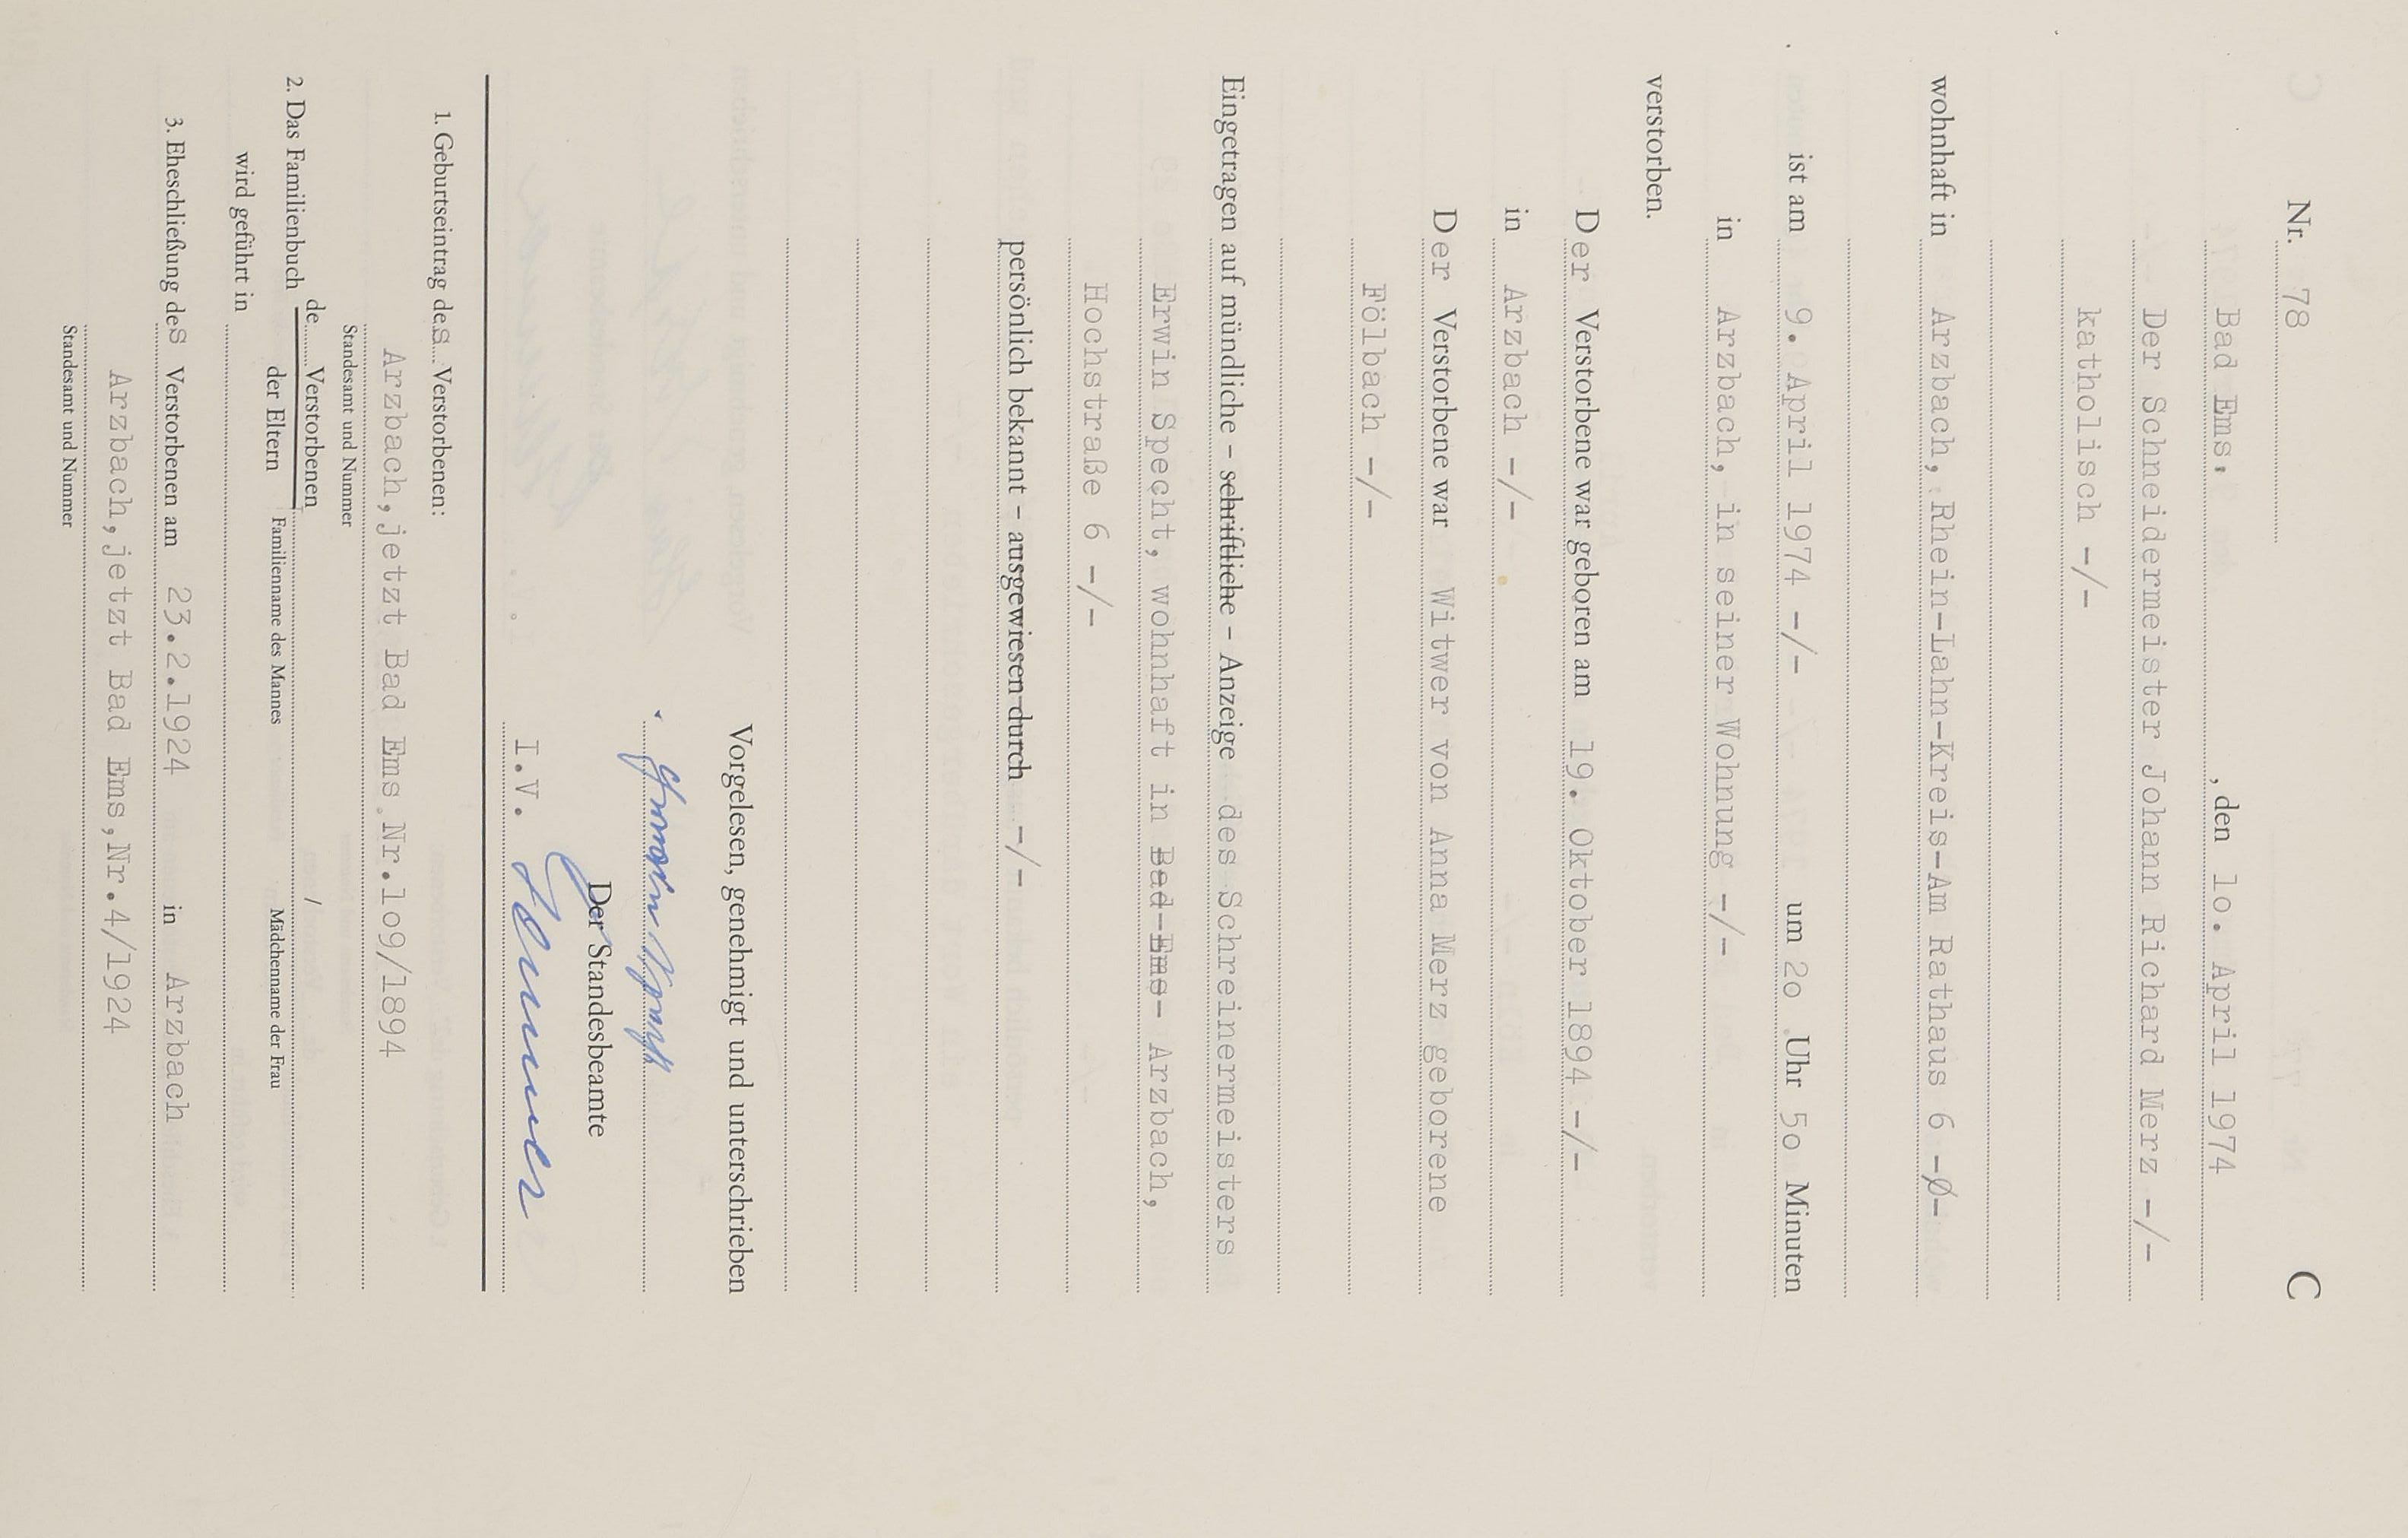 Nr. 78 C
Bad Ems, , den 1o. April 1974
Der Schneidermeister Johann Richard Merz -/-
katholisch -/-
wohnhaft in Arzbach, Rhein-Lahn-Kreis-Am Rathaus 6 -Ø-
ist am 9. April 1974 -/- um 2o Uhr 5o Minuten
in Arzbach, in seiner Wohnung -/-
verstorben.
Der Verstorbene war geboren am 19. Oktober 1894 -/-
in Arzbach -/-
Der Verstorbene war Witwer von Anna Merz geborene
Fölbach -/-
Eingetragen auf mündliche – schriftliche – Anzeige des Schreinermeisters
Erwin Specht, wohnhaft in Bad-Ems- Arzbach,
Hochstraße 6 -/-
persönlich bekannt – ausgewiesen durch -/-
Vorgelesen, genehmigt und unterschrieben
Der Standesbeamte
I.V.
1. Geburtseintrag des Verstorbenen:
Arzbach,jetzt Bad Ems Nr.1o9/1894
Standesamt und Nummer
2. Das Familienbuch de Verstorbenen /
der Eltern Familienname des Mannes Mädchenname der Frau
wird geführt in
3. Eheschließung des Verstorbenen am 23.2.1924 in Arzbach
Arzbach,jetzt Bad Ems,Nr.4/1924
Standesamt und Nummer